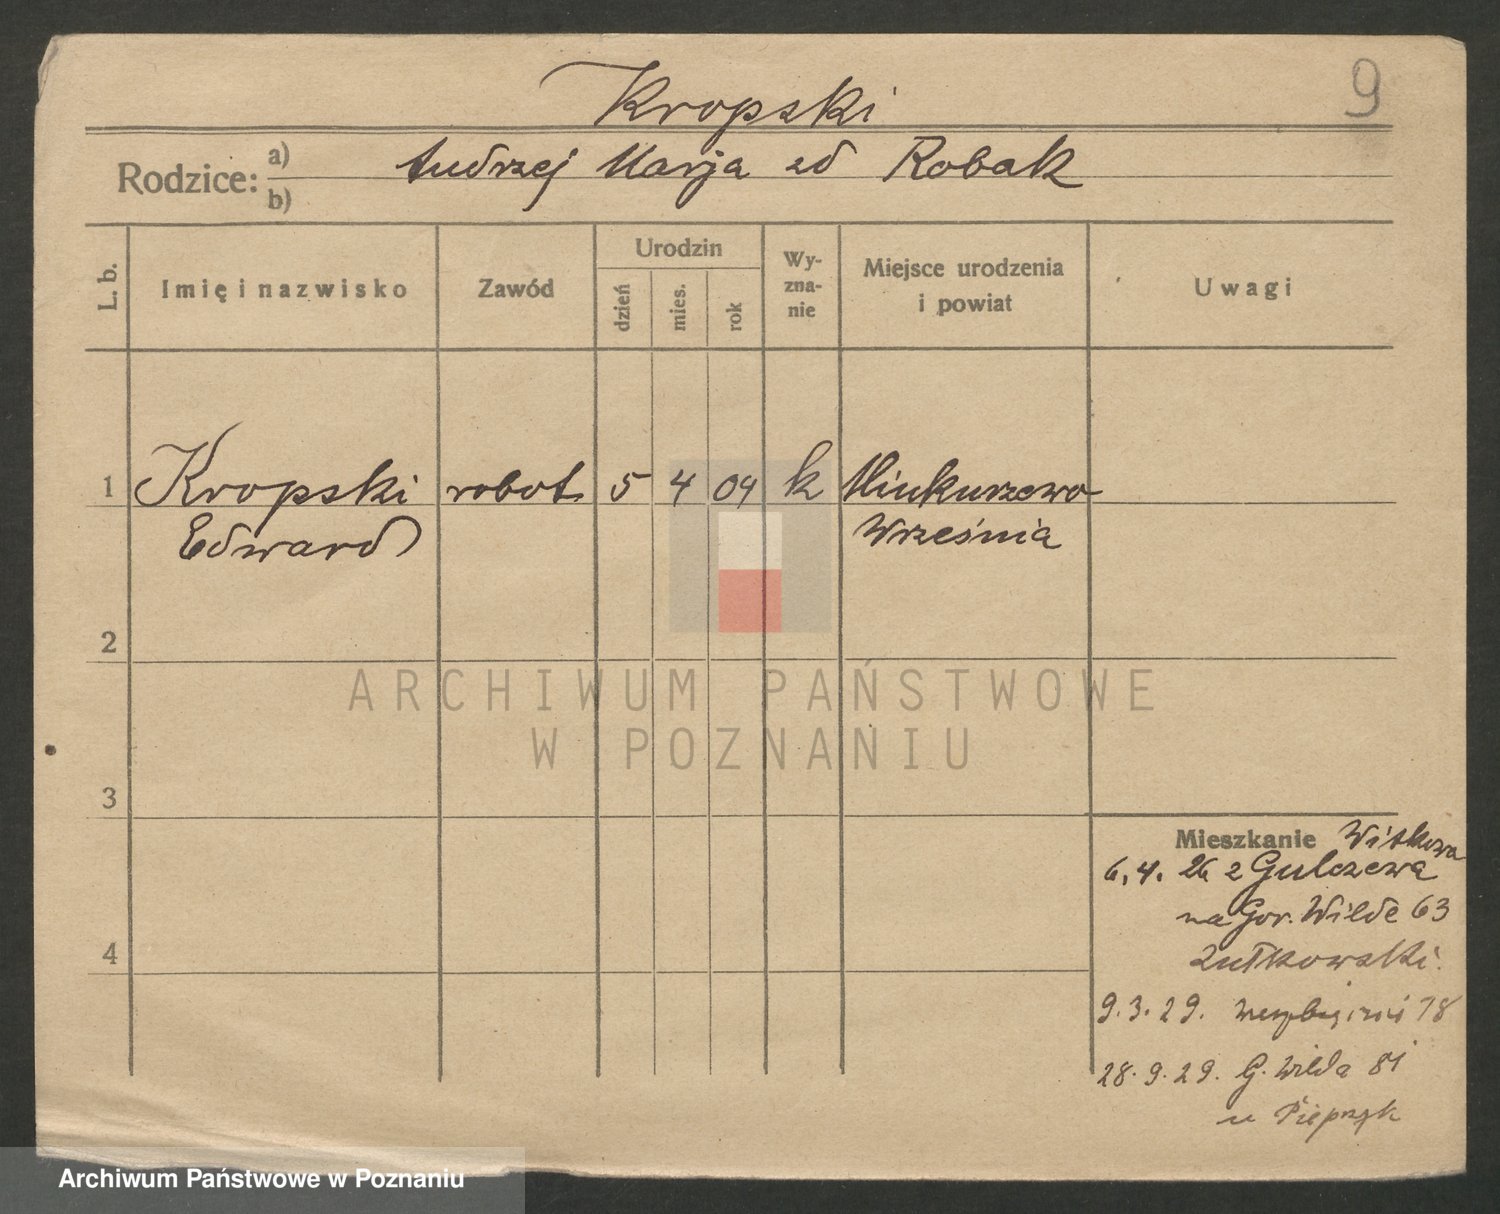 9
Kropski
Rodzice: a) Andrzej Marja zd Robak
b)
L. b.
Imię i nazwisko
Zawód
Urodzin
dzień
mies.
rok
Wy-
zna-
nie
Miejsce urodzenia
i powiat
Uwagi
1 Kropski robot. 5 4 04 k
Edward Września
2
3
4
ARCHIWUM PAŃSTWOWE
W POZNANIU
Mieszkanie Witkowa
6.4.26 z Gulczewa
na Gór. Wilde 63
9.3.29. 78
28.9.29. G. Wilda 81
u Pieprzyk
Archiwum Państwowe w Poznaniu